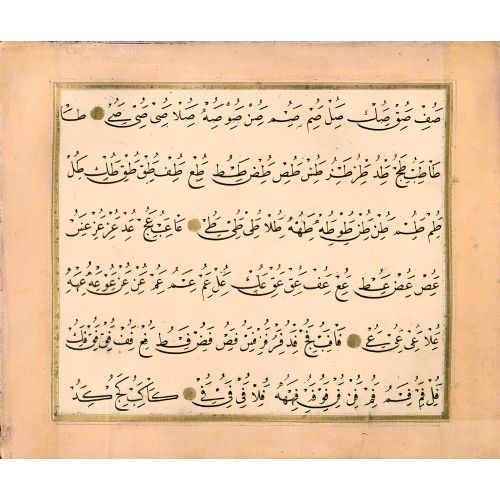 صف صق صك صل صم صم صن صو صه صلا صى صى صے طا
طا طب طج طد طر طس طص طض طط طع طف طق طك طل
طم طم طن طن طو طه طهه طلا طى طى طے عا عب عج عد عر عز عس
عص عض عط عع عف عق عك عل عم عم عم عن عو عه عهه
علا عى عى عے فا فب فج فد فر فز فس فص فض فط فع فف فق فك
فل فم فم فم فن فو فه فهه فلا فى فى فے كا كب كج كد